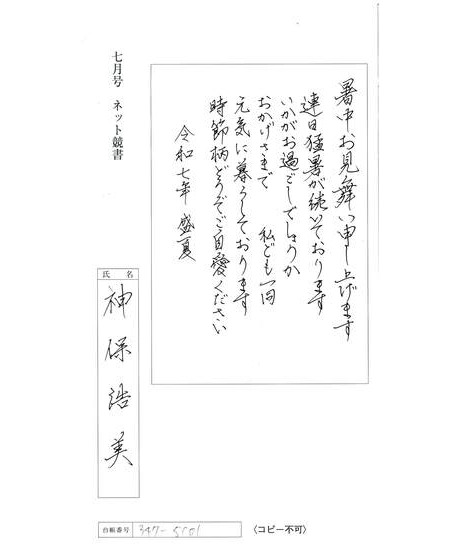 暑中お見舞い申し上げます
連日猛暑が続いております
いかがお過ごしでしょうか
おかげさまで　私ども一同
元気に暮らしております
時節柄どうぞご自愛ください
令和七年 盛夏
七月号 ネット競書
氏名
神保浩美
台帳番号 347-5001
〈コピー不可〉